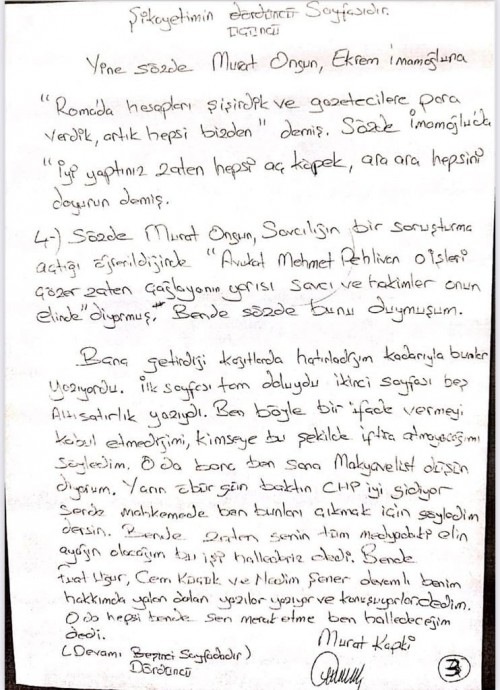 Şikayetimin dördüncü Sayfasıdır.
Üçüncü
Yine sözde Murat Ongun, Ekrem İmamoğluna
"Roma'da hesapları şişirdik ve gazetecilere para
verdik, artık hepsi bizden" demiş. Sözde İmamoğlu'da
"İyi yaptınız zaten hepsi aç köpek, ara ara hepsini
doyurun demiş.
4-) Sözde Murat Ongun, Savcılığın bir soruşturma
açtığı öğrenildiğinde "Avukat Mehmet Pehlivan o işleri
çözer zaten Çağlayanın yarısı savcı ve hakimler onun
elinde" diyormuş. Bende sözde bunu duymuşum.
Bana getirdiği kağıtlarda hatırladığım kadarıyla bunlar
yazıyordu. İlk sayfası tam doluydu ikinci sayfası beş
Altı satırlık yazıydı. Ben böyle bir ifade vermeyi
kabul etmediğimi, kimseye bu şekilde iftira atmayacağımı
söyledim. O da bana ben sana Makyavelist düşün
diyorum. Yarın öbür gün baktın CHP iyi gidiyor
sende mahkemede ben bunları çıkmak için söyledim
dersin. Bende zaten senin tüm medyadaki elin
ayağın olacağım bu işi hallederiz dedi. Bende
Fuat Uğur, Cem Küçük ve Nedim Şener devamlı benim
hakkımda yalan dolan yazılar yazıyor ve konuşuyorlar dedim.
O da hepsi bende sen merak etme ben halledeceğim
dedi.
Murat Kapki
(Devamı Beşinci Sayfadadır)
Dördüncü
3